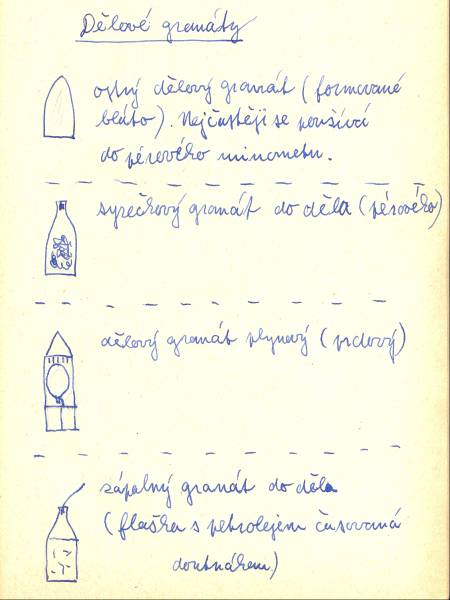 Dělové granáty
ostrý dělový granát (formované
bláto). Nejčastěji se používá
do pérového minometu.
syrečkový granát do děla (pérového)
dělový granát plynový (prdový)
zápalný granát do děla
(flaška s petrolejem časovaná
doutnákem)